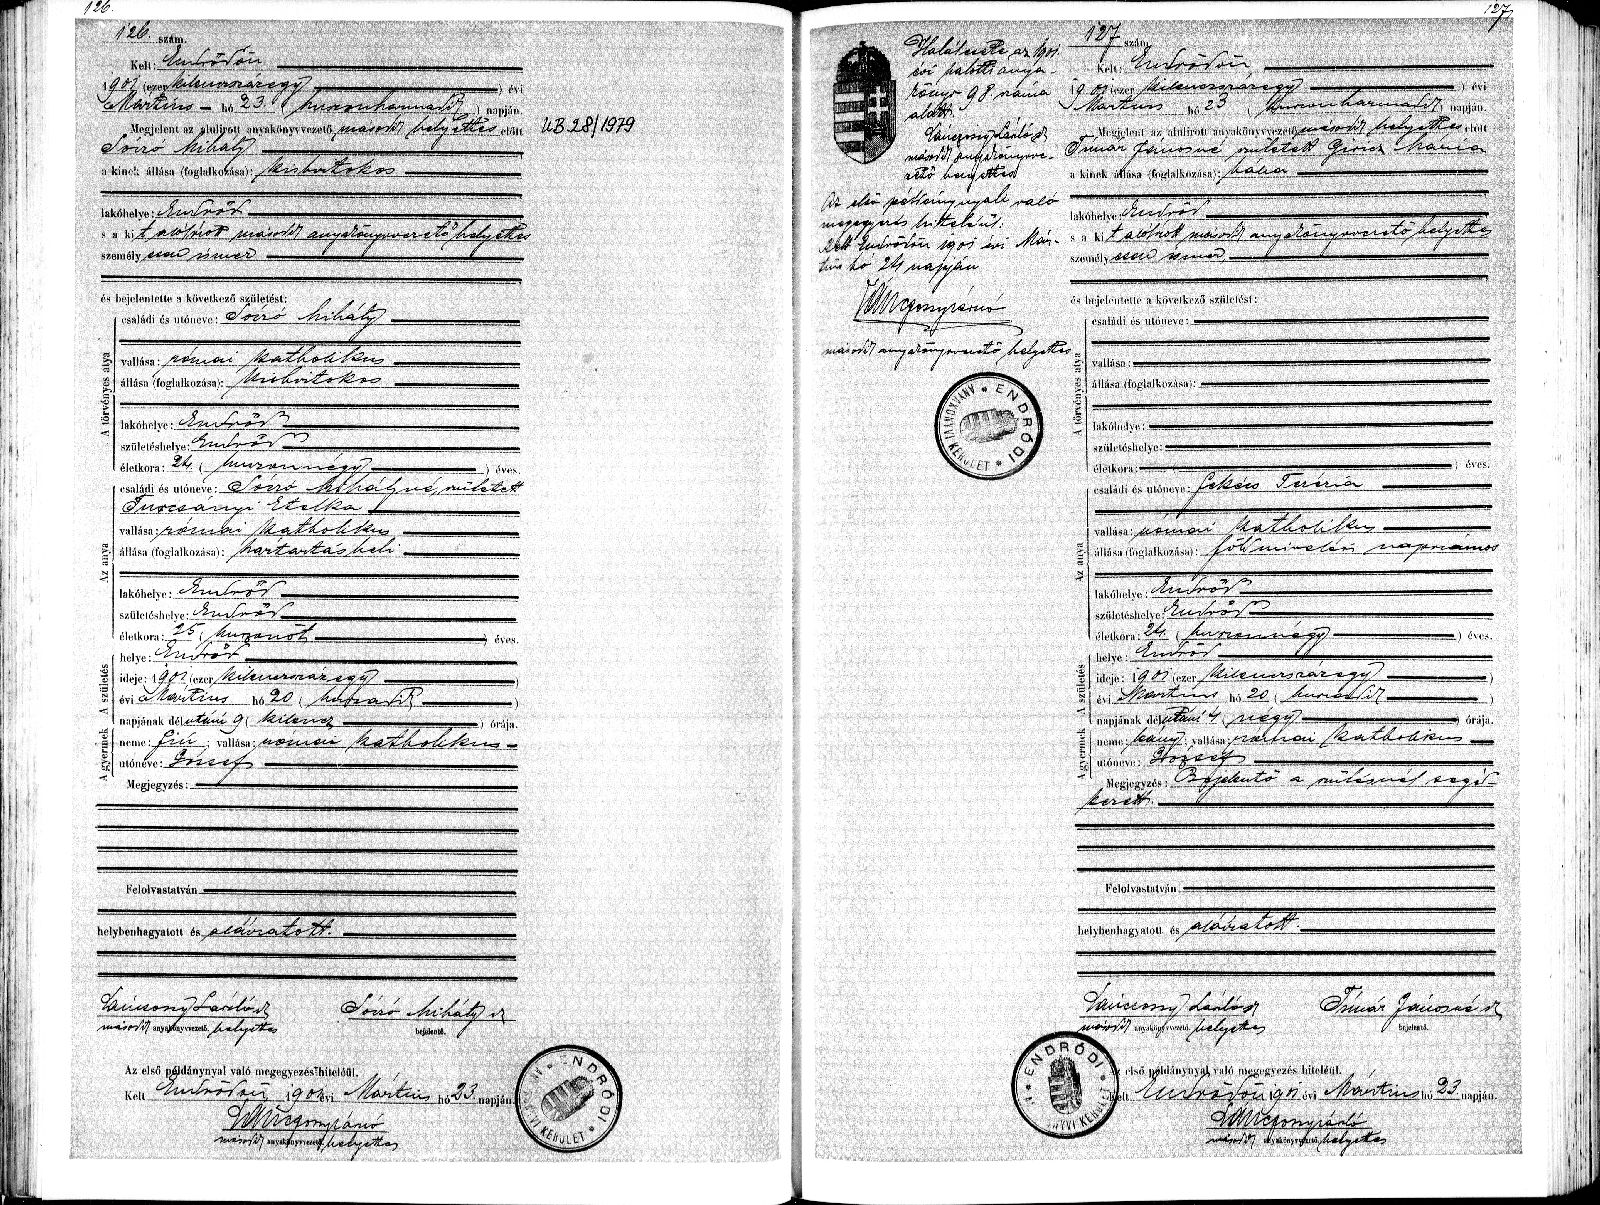 126.
126. szám.
Kelt: Endrődön
1901 (ezer kilenczszázegy) évi
Mártius hó 23 (huszonharmadik) napján.
Megjelent az alulirott anyakönyvvezető második helyettes előtt
Soczó Mihály
a kinek állása (foglalkozása): kisbirtokos
lakóhelye: Endrőd
s a kit alulirott második anyakönyvvezető helyettes
személyesen ismer
és bejelentette a következő születést:
A törvényes atya
családi és utóneve: Soczó Mihály
vallása: római katholikus
állása (foglalkozása): kisbirtokos
lakóhelye: Endrőd
születéshelye: Endrőd
életkora: 24 (huszonnégy) éves.
Az anya
családi és utóneve: Soczó Mihályné, született
Turcsányi Etelka
vallása: római katholikus
állása (foglalkozása): háztartásbeli
lakóhelye: Endrőd
születéshelye: Endrőd
életkora: 25 (huszonöt) éves.
A születés
helye: Endrőd
ideje: 1901 (ezer kilenczszázegy)
évi Mártius hó 20 (huszadik)
napjának délutáni 9 (kilencz) órája.
A gyermek
neme: fiú; vallása: római katholikus
utóneve: József
Megjegyzés:
Felolvastatván
helybenhagyatott és aláiratott.
második anyakönyvvezető helyettes
bejelentő.
Az első példánynyal való megegyezés hiteléül.
Kelt Endrődön 1901 évi Mártius hó 23 napján.
második anyakönyvvezető helyettes
ENDRŐDI ANYAKÖNYVI KERÜLET
UB 28/1979
127.
127 szám.
Halálesete az 1901
évi halotti anya-
könyv 98 száma
alatt.
második anyakönyvve-
zető helyettes
Az első példánynyali való
megegyezés hiteléül.
Kelt Endrődön 1901 évi Már-
tius hó 24 napján
második anyakönyvvezető helyettes
ENDRŐDI ANYAKÖNYVI KERÜLET
Kelt: Endrődön
1901 (ezer kilenczszázegy) évi
Mártius hó 23 (huszonharmadik) napján.
Megjelent az alulirott anyakönyvvezető második helyettes előtt
Tímár Jánosné született Mária
a kinek állása (foglalkozása): bába
lakóhelye: Endrőd
s a kit alulirott második anyakönyvvezető helyettes
személyesen ismer
és bejelentette a következő születést:
A törvényes atya
családi és utóneve:
vallása:
állása (foglalkozása):
lakóhelye:
születéshelye:
életkora: ( ) éves.
Az anya
családi és utóneve: Gellén Terézia
vallása: római katholikus
állása (foglalkozása): földmivelési napszámos
lakóhelye: Endrőd
születéshelye: Endrőd
életkora: 24 (huszonnégy) éves.
A születés
helye: Endrőd
ideje: 1901 (ezer kilenczszázegy)
évi Mártius hó 20 (huszadik)
napjának délutáni 4 (négy) órája.
A gyermek
neme: vallása: római katholikus
utóneve: József
Megjegyzés: Bejelentő a szülésnél segéd-
kezett.
Felolvastatván
helybenhagyatott és aláiratott.
Tímár Jánosné
második anyakönyvvezető helyettes
bejelentő.
első példánynyal való megegyezés hiteléül.
Kelt Endrődön 1901 évi Mártius hó 23 napján.
második anyakönyvvezető helyettes
ENDRŐDI ANYAKÖNYVI KERÜLET